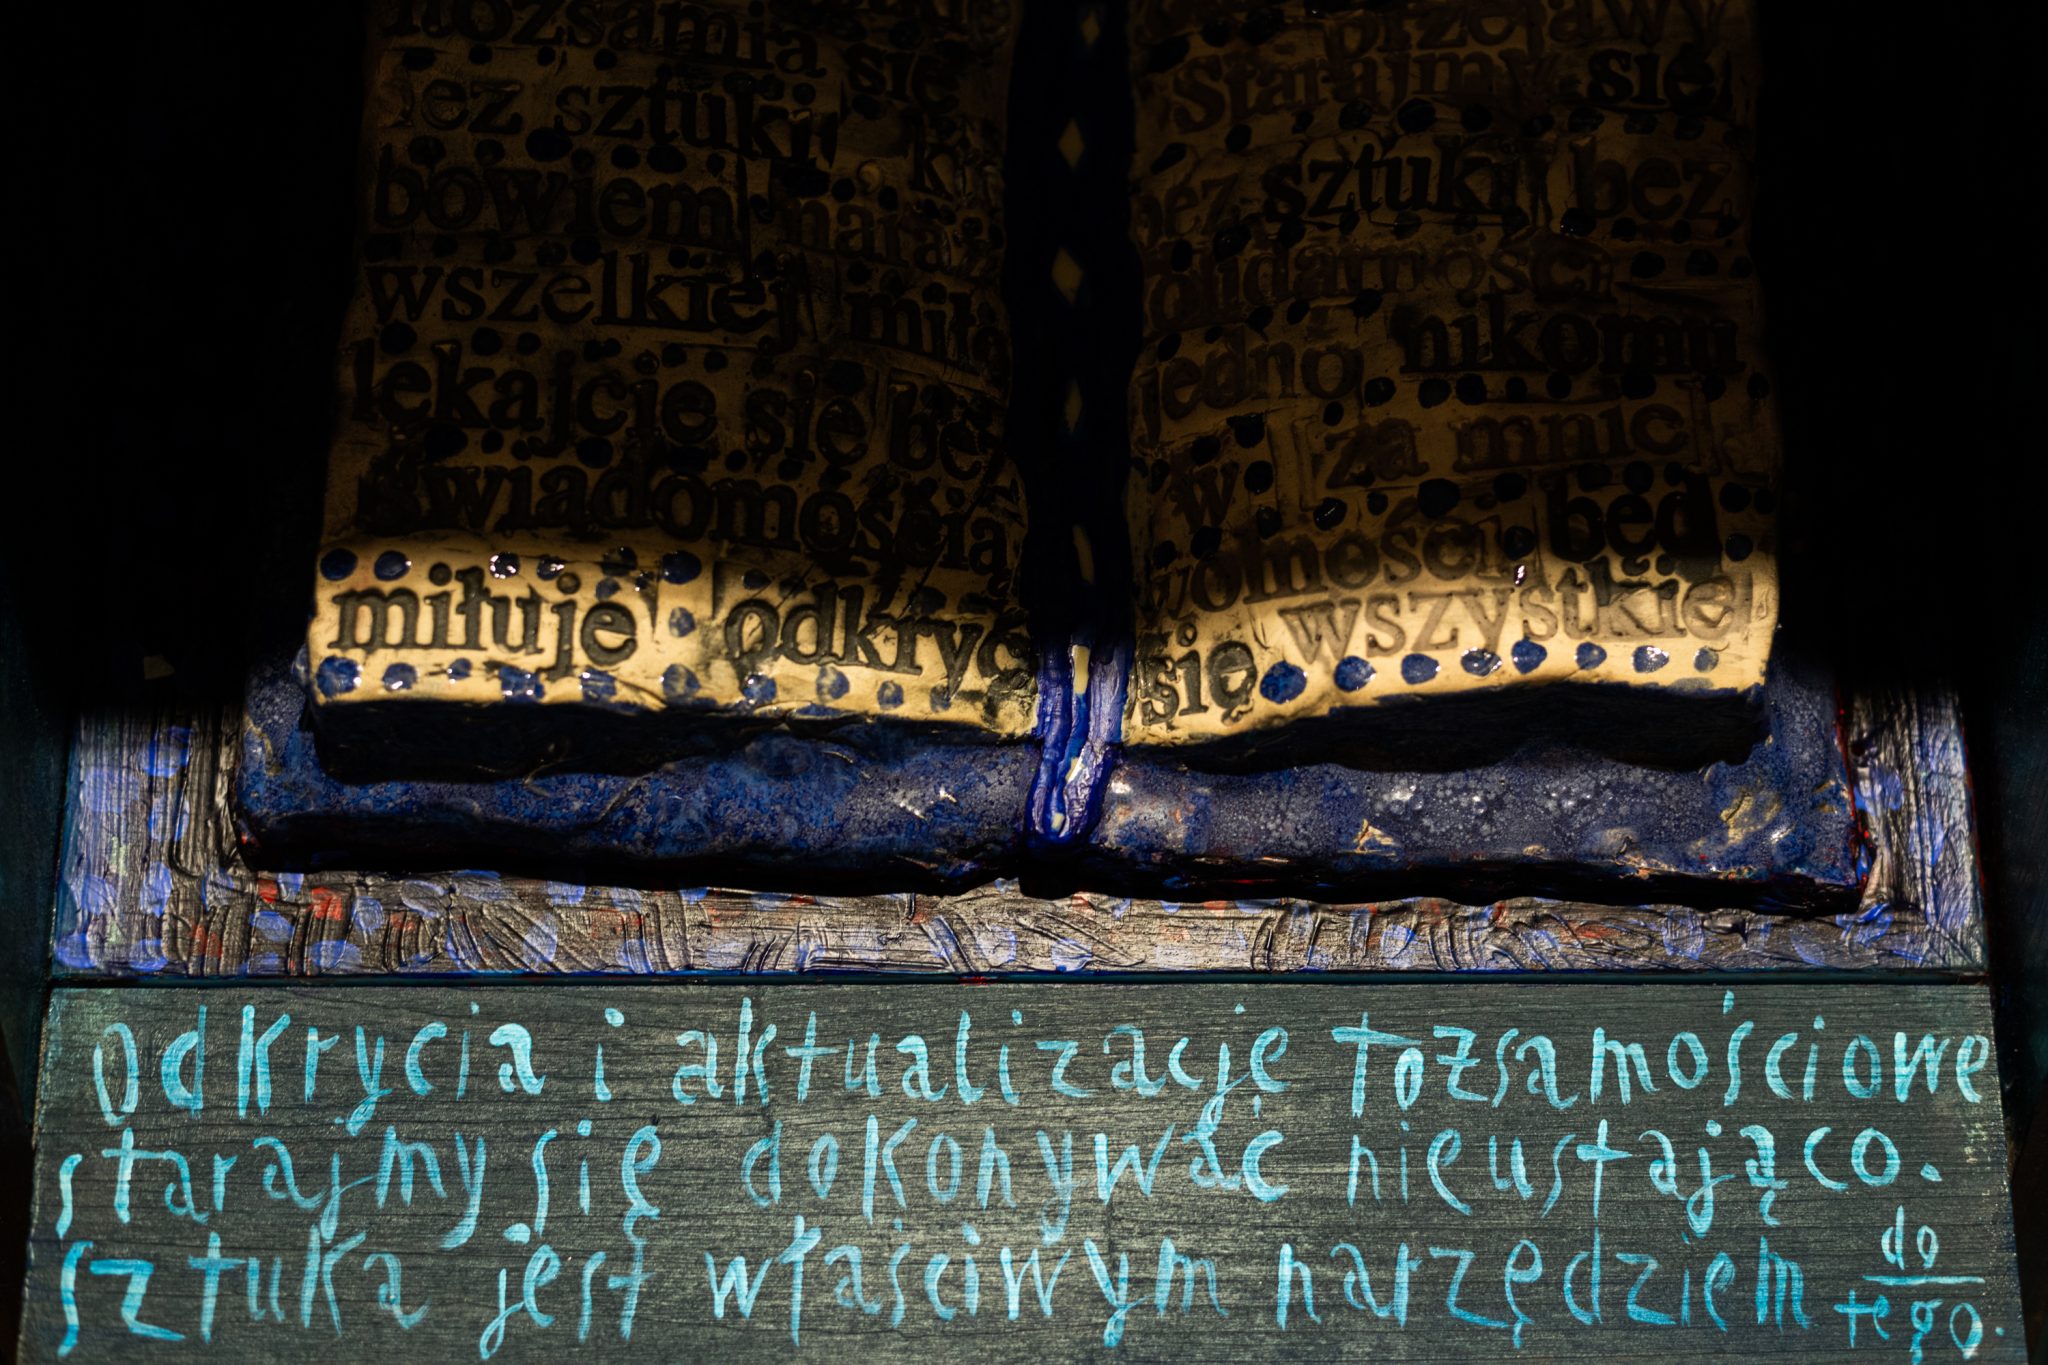 się
bez sztuki
bowiem
wszelkiej
lękajcie się
świadomością
miłuje odkryć
przejawy
Starajmy się
bez sztuki bez
solidarności
jedno nikomu
w za mnie
będ
się wszystkie
odkrycia i aktualizację tożsamościowe
starajmy się dokonywać nieustająco.
sztuka jest właściwym narzędziem do tego.